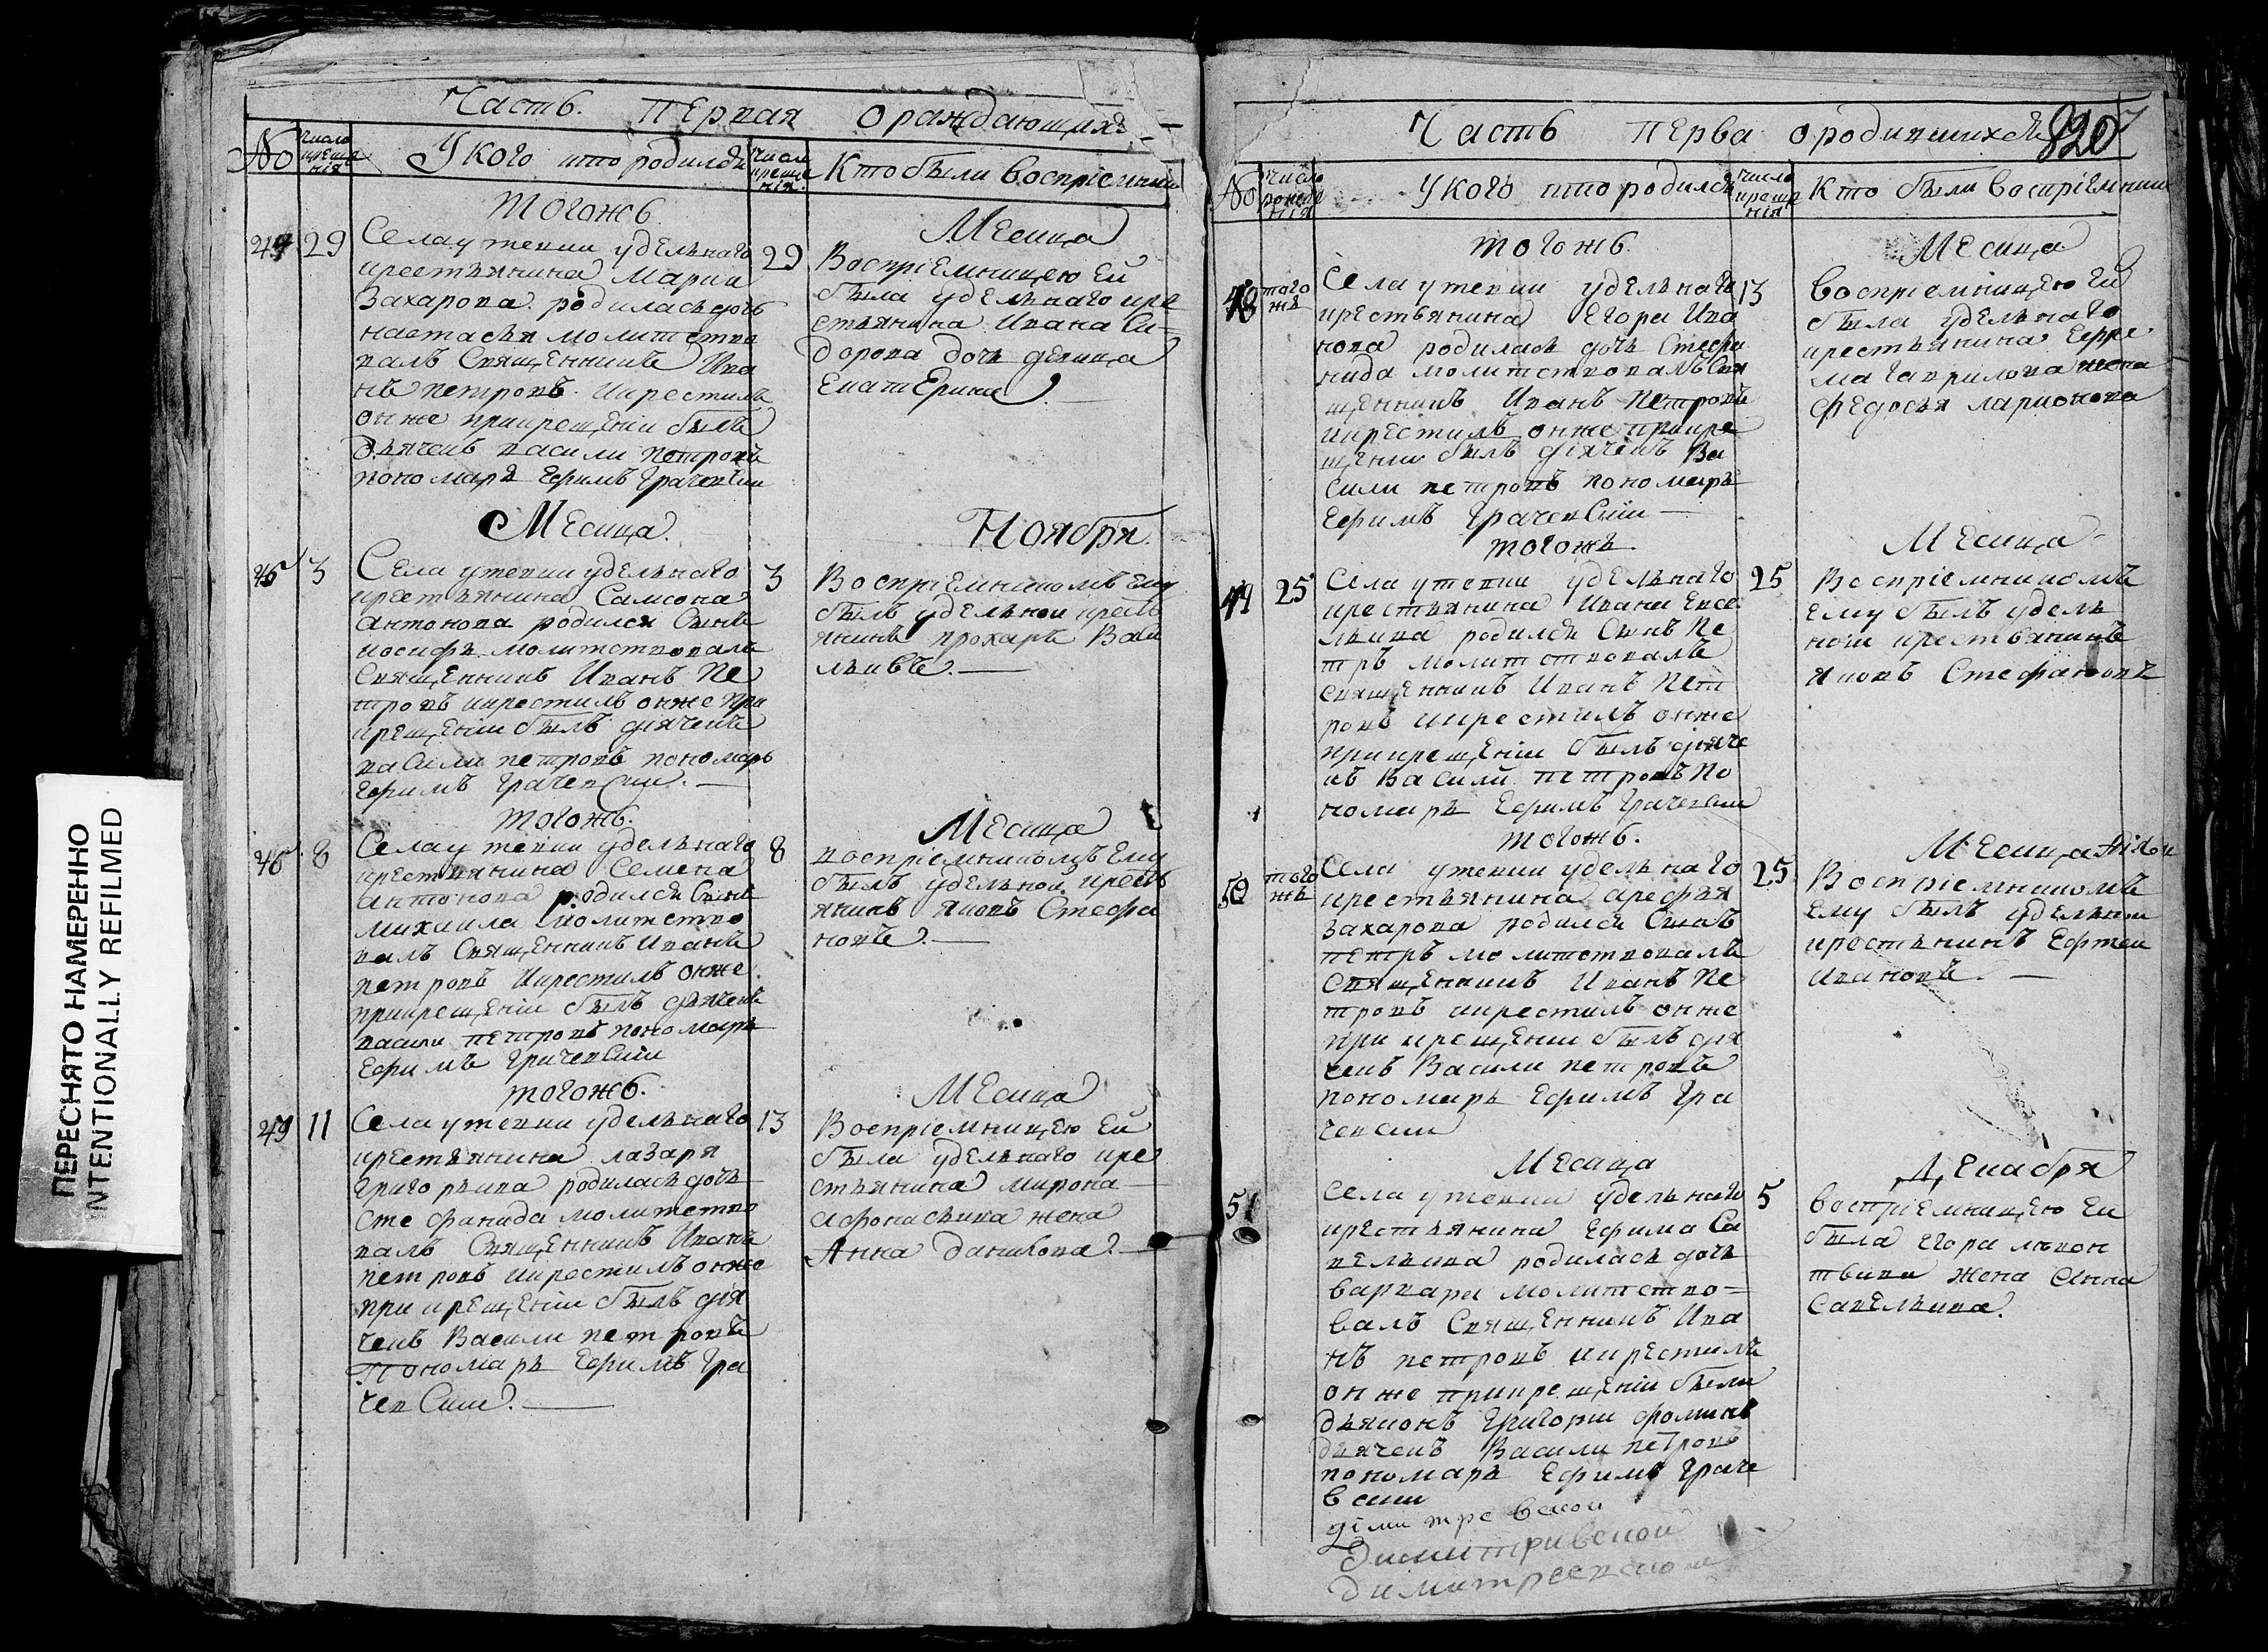 Часть. перкая ораждающихъ
No
число
креще
нія
У кого кто родился
число
креще
нія
Кто были воспріемники
тогожъ
Месица
44
29
Села утевки удельнаго
крестьянина Марки
Захарова родилась дочь
настасья молитство
валъ Священникъ Ива
нъ петровъ икрестилъ
онже прикрещеніи былъ
дьячекъ васили петровъ
пономарь Ефимъ Грачевски
29
Воспріемницею Ей
была удельнаго кре
стьянина Ивана Си-
дорова дочь девица
Екатерина
Месица
Ноября
45
3
Села утевки удельнаго
крестьянина Самсона
антонова родился Сынъ
иосифъ молитствовалъ
Священникъ Иванъ Пе
тровъ икрестилъ онже при
крещеніи былъ дьячекъ
василы петровъ пономарь
Ефимъ Грачевски. —
3
Воспріемникомъ Ему
былъ удельнои крест
янинъ прохаръ Васи
льивъ. —
тогожъ.
Месица
46
8
Села утевки удельнаго
крестьянина Семена
антонова родился Сынъ
михаила молитство
валъ Священникъ Иванъ
петровъ икрестилъ онже
прикрещеніи былъ дьячекъ
васили петровъ пономарь
Ефимъ Грачевскіи
8
воспріемникомъ Ему
былъ удельнои крест
янинъ яковъ Стефа
новъ. —
тогожъ.
Месица
49
11
Села утевки удельнаго
крестьянина лазаря
григорьива родилась дочь
стефанида молитство
валъ Священникъ Иванъ
петровъ икрестилъ онже
при крещеніи былъ дья
чекъ Васили петровъ
Пономарь Ефимъ Гра
чевСкии. —
13
Воспріемницею Ей
была удельнаго кре
стьянина мирона
афонасьива жена
Анна данилова. —
Часть перва ородившихся
820
No
число
рожде
нія
У кого кто родился
число
креще
нія
Кто были воспріемники
тогожъ.
Месица
48
того
жъ
Села утевки удельнаго
крестьянина Егора Ива
нова родилась дочь Стефа
нида молитствовалъ Свя
щенникъ Иванъ Петровъ
икрестилъ онже прикре
щении былъ діячекъ Ва
сили петровъ пономарь
Ефимъ Грачевскіи —
13
воспріемницею Ей
была удельнаго
крестьянина Ефре
ма гаврилова жена
федосья ларионова
тогожъ.
Месица
49
25
Села утевки удельнаго
крестьянина Ивана Евсе
льива родился Сынъ Пе
тръ молитствовалъ
священникъ Иванъ Пет
ровъ икрестилъ онже
прикрещеніи былъ дьяче
къ Васили петровъ По
номарь Ефимъ Грачевски
25
Воспріемникомъ
Ему былъ удель
нои крестьянинъ
яковъ Стефановъ
тогожъ.
Месица
50
того
жъ
Села утевки удельнаго
крестьянина арефья
захарова родился Сынъ
петръ молитствовалъ
Священникъ Иванъ Пе
тровъ икрестилъ онже
при крещении былъ дья
чекъ Васили петровъ
пономарь Ефимъ Гра
чевски
25
Воспріемникомъ
Ему былъ удельнои
крестьянинъ Ефтеи
Ивановъ. —
Месица
Декабря
51
Села утевки удельнаго
крестьянина Ефима Са
вельива родилась дочь
варвара молитство=
валъ Священникъ Ива
нъ петровъ икрестилъ
онже прикрещеніи были
дьяконъ григории фоминъ
дьячекъ Васили петровъ
пономарь Ефимъ Граче
вски
5
воспріемницею Еи
была Егора леон
тьива жена Анна
Савельива.
димитревскои
Димитривскои
димитреевскои
ПЕРЕСНЯТО НАМЕРЕННО
INTENTIONALLY REFILMED